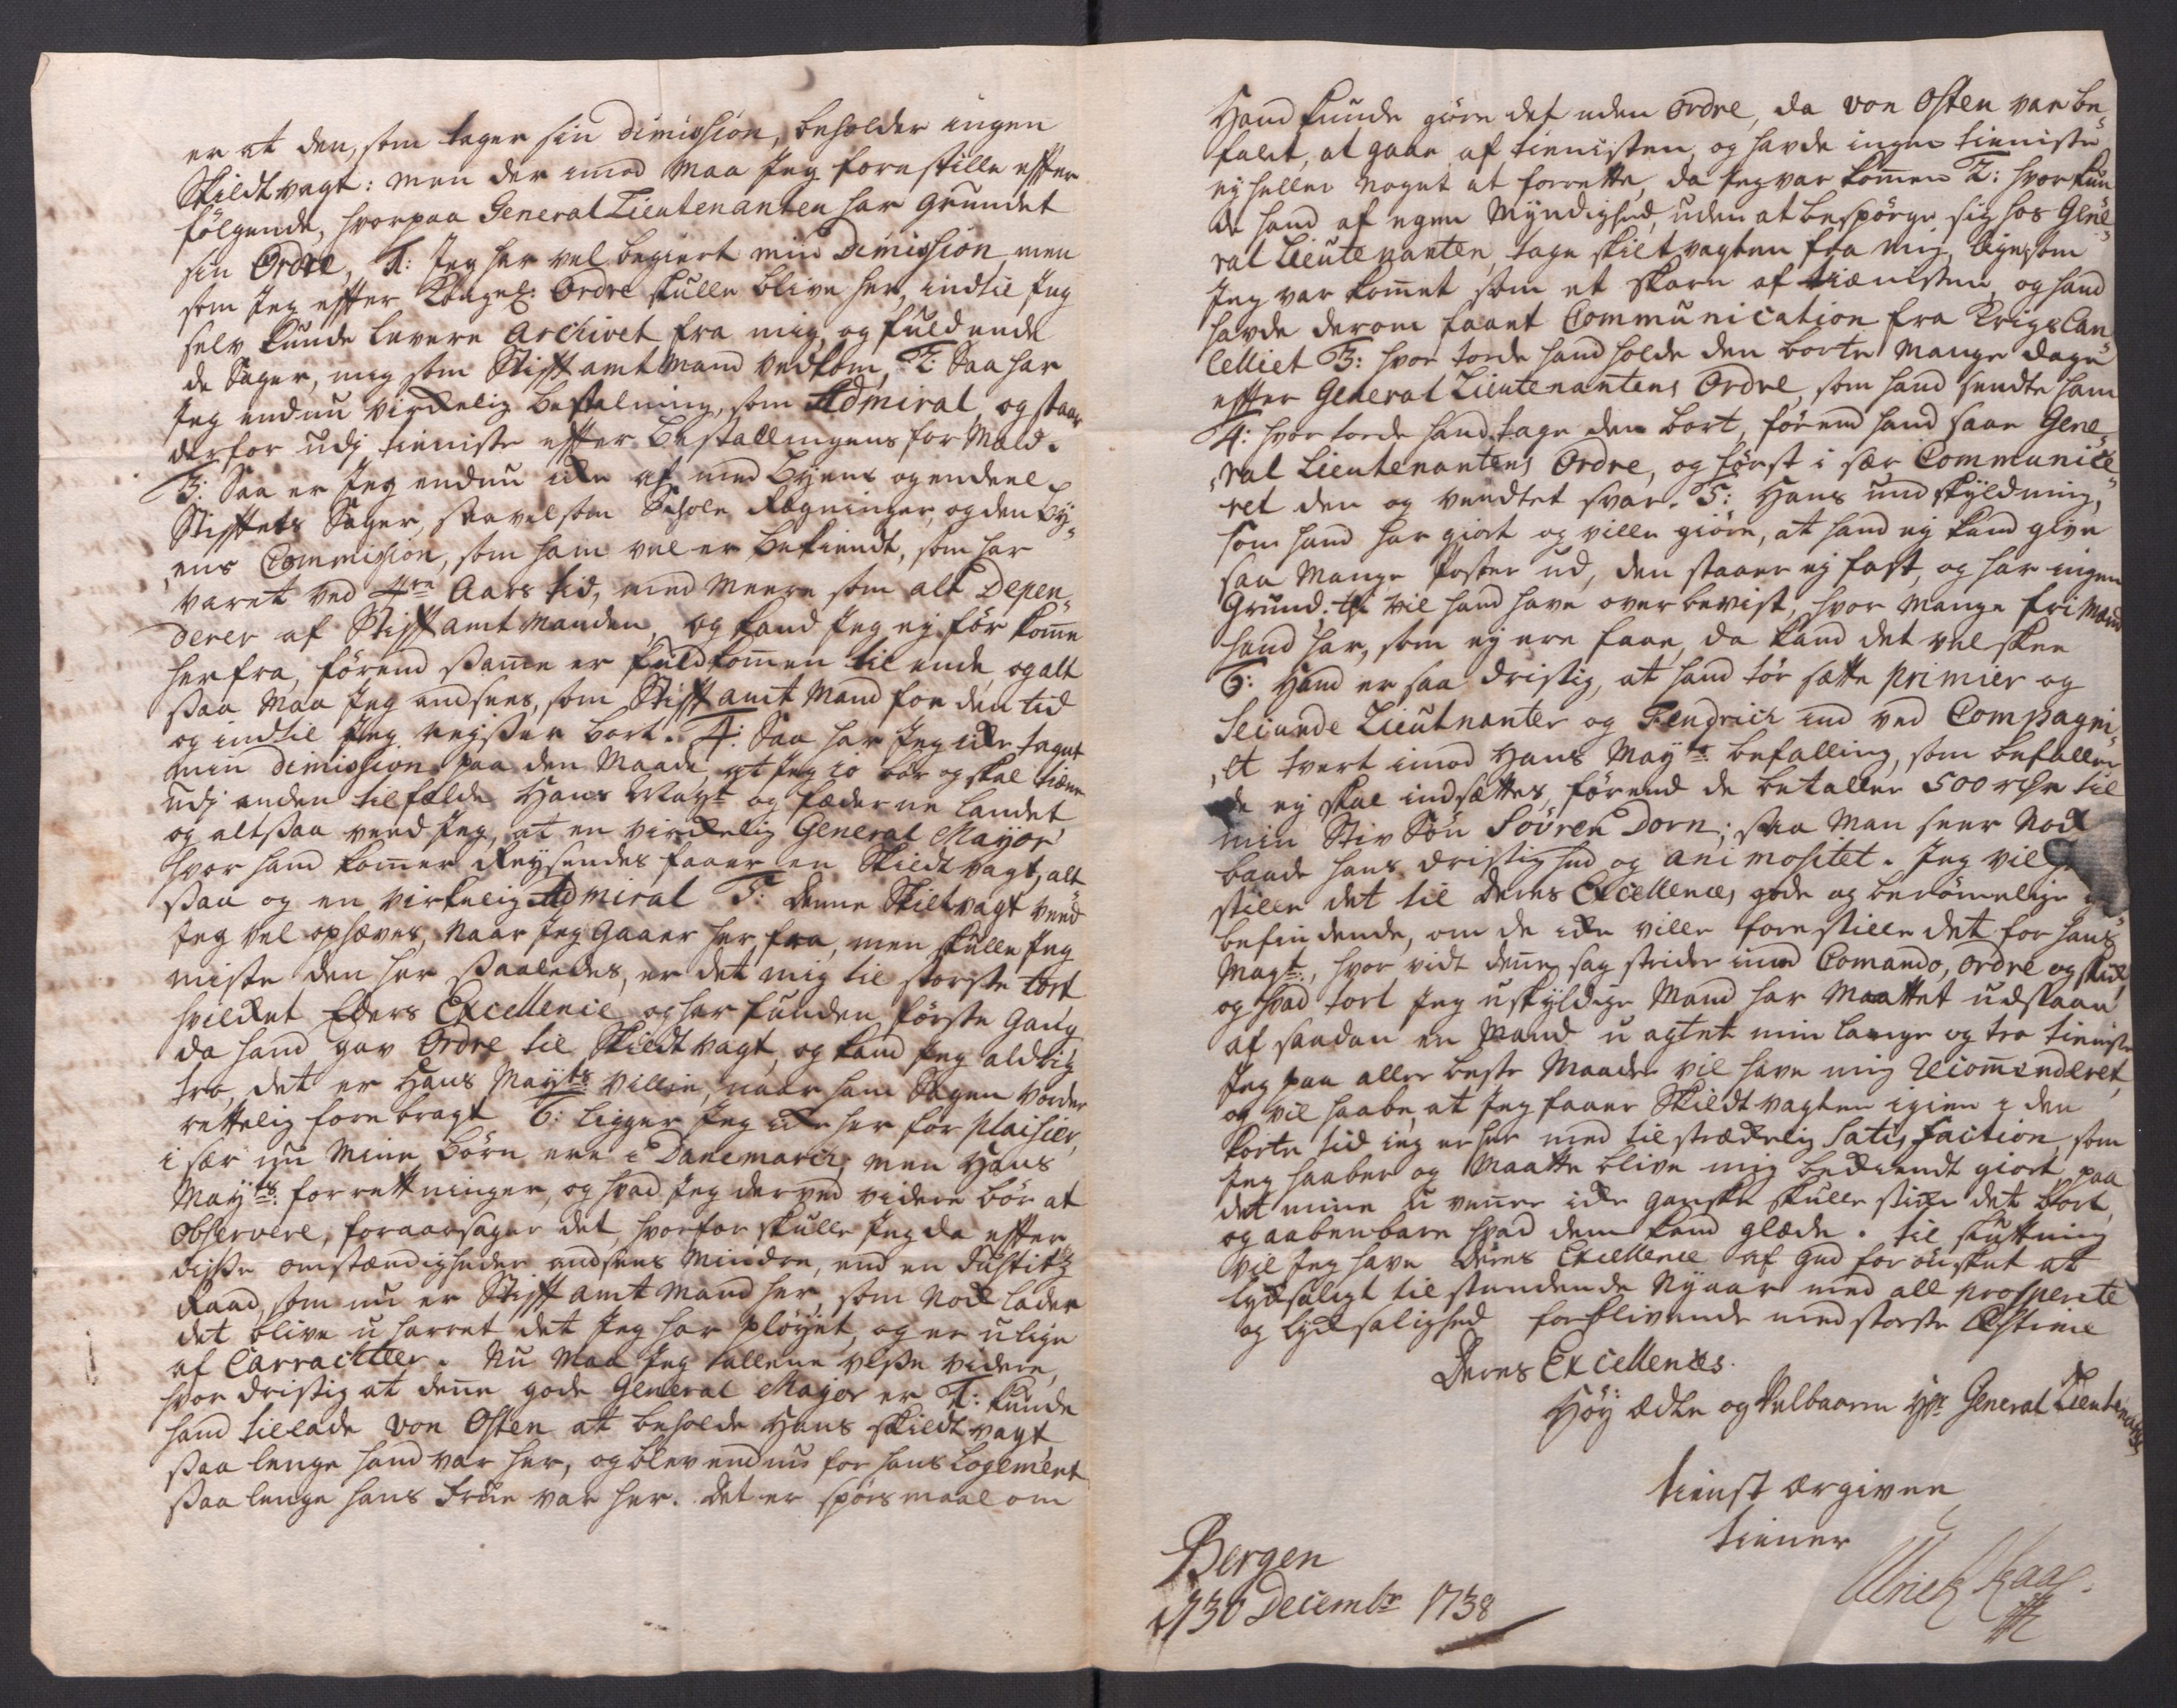 er at den, som tager sin dimission, beholder ingen
Skildtvagt: men der imod maa Jeg forestille efter
fölgende, hvorpaa General Lieutenanten har grundet
sin Ordre, 1: Jeg har vel begiert min Dimission, men
som Jeg efter Kongel: Ordre skulle blive her, indtil Jeg
selv kunde levere Archivet fra mig, og fuldende
de Sager, mig som Stiftamtmand vedkom, 2: Saa har
Jeg endnu virkelig bestalning, som Admiral, og staar
derfor udj tieniste efter bestallingens for Mald.
3: Saa er Jeg endnu icke af med Byens og endeel
Stiftets Sager, saavelsom Schole Regninger, og den By„
„ens Commission, som ham vel er bekiendt, som har
varet ved 4re Aars tid, med meere som alt Depen„
derer af Stiftamtmanden, og kand Jeg ej för komme
herfra, förend samme er fuldkommen til ende, og alt
saa maa Jeg andsees, som Stiftamtmand for den tid
og indtil Jeg rejser bort. 4: Saa har Jeg icke taget
min dimission paa den Maade, at Jeg jo bör og skal tiene
udj anden tilfælde Hans Mayt og fæderne landet
og altsaa veed Jeg, at en virkelig General Mayor
hvor hand kommer Reysendes faaer en Skildtvagt, alt
saa og en virkelig Admiral 5: denne Skiltvagt veed
Jeg vel ophæves, naar Jeg gaaer her fra, men skulle Jeg
miste den her saaledes, er det mig til storste tort
hvilket Eders Excellence og har funden förste gang
da hand gav Ordre til Skildtvagt, og kand Jeg aldrig
tro, det er Hans Mayts villie, naar ham Sagen vorder
rettelig forebragt 6: ligger Jeg icke her for plaisier,
i sær nu mine börn ere i Danemarck, men Hans
Mayts: forrettninger, og hvad Jeg derved videre bör at
observere, foraarsager det, hvorfor skulle Jeg da efter
disse omstændigheder andsees mindre, end en Justitz
Raad, som nu er Stiftamtmand her, som nock lader
det blive u harvet det Jeg har plöyet, og er ulige
af Carracteer. Nu maa Jeg allene vise videre,
hvor dristig at denne gode General Major er 1: kunde
hand tillade von Osten at beholde Hans skildtvagt,
saa lenge hand var her, og blev endnu for hans Logement
saa lenge hans Frue var her. det er spörsmaal om
Hand kunde giöre det uden Ordre, da von Osten var be„
falet, at gaae af tienisten, og havde ingen tieniste
ej heller noget at forrette, da Jeg var kommen 2: hvor kun
de hand af egen Myndighed, uden at bespörge sig hos Gene„
ral Lieutenanten, tage skiltvagten fra mig, ligesom
Jeg var kommet som et skarn af tiænisten, og hand
havde derom faaet Communication fra Krigs Can„
celliet 3: hvor torde hand holde den borte mange dage
efter General Lieutenantens Ordre, som hand sendte ham
4: hvor torde hand tage den bort, förend hand saae Gene„
„ral Lieutenantens Ordre, og först i sær Communice„
ret den og vendtet svar. 5: Hans undskyldning,
som hand har giort og ville giöre, at hand ej kand give
saa mange Poster ud, den staaer ej fast, og har ingen
Grund, thi vil hand have overbevist, hvor mange fri mænd
hand har, som ej ere faae, da kand det vel skee
6: Hand er saa dristig, at hand tör sætte primier og
Secunde Lieutnanter og Fendrich ind ved Compagni„
„et tvert imod Hans Mayts befalling, som befaller
de ej skal indsættes, förend de betaller 500 rdr til
min Stiv Sön Sövren Dorn; saa man seer nock
baade hans dristighed og animositet. Jeg vil
stille det til deres Excellences gode og berömmelige
befindende, om de icke ville forestille det for hans
Mayt:, hvor vidt denne sag strider imod Comando, Ordre og skik
og hvad tort Jeg uskyldige Mand har maattet udstaae
af saadan en Mand uagtet min lange og tro tieniste
Jeg paa aller beste Maader vil have mig Recommenderet,
og vil haabe, at Jeg faaer Skildtvagten igien i den
korte tid jeg er her med tilstrækkelig Satisfaction, som
Jeg haaber og maatte blive mig bekiendt giort, paa
det mine u venner icke ganske skulle stikke det bort,
og aabenbare hvad dem kand glæde. til slutning
vil Jeg have Deres Excellence af Gud forönsket at
lycksaligt tilstundende Nyaar med all prosperite
og lycksalighed forblivende med storste Æstime
Deres Excellences.
Höy ædle og Velbaarne Hr General Lieutenants
tienst ærgivne
tiener
Ulrich Kaas
Bergen
d 30 Decembr 1738